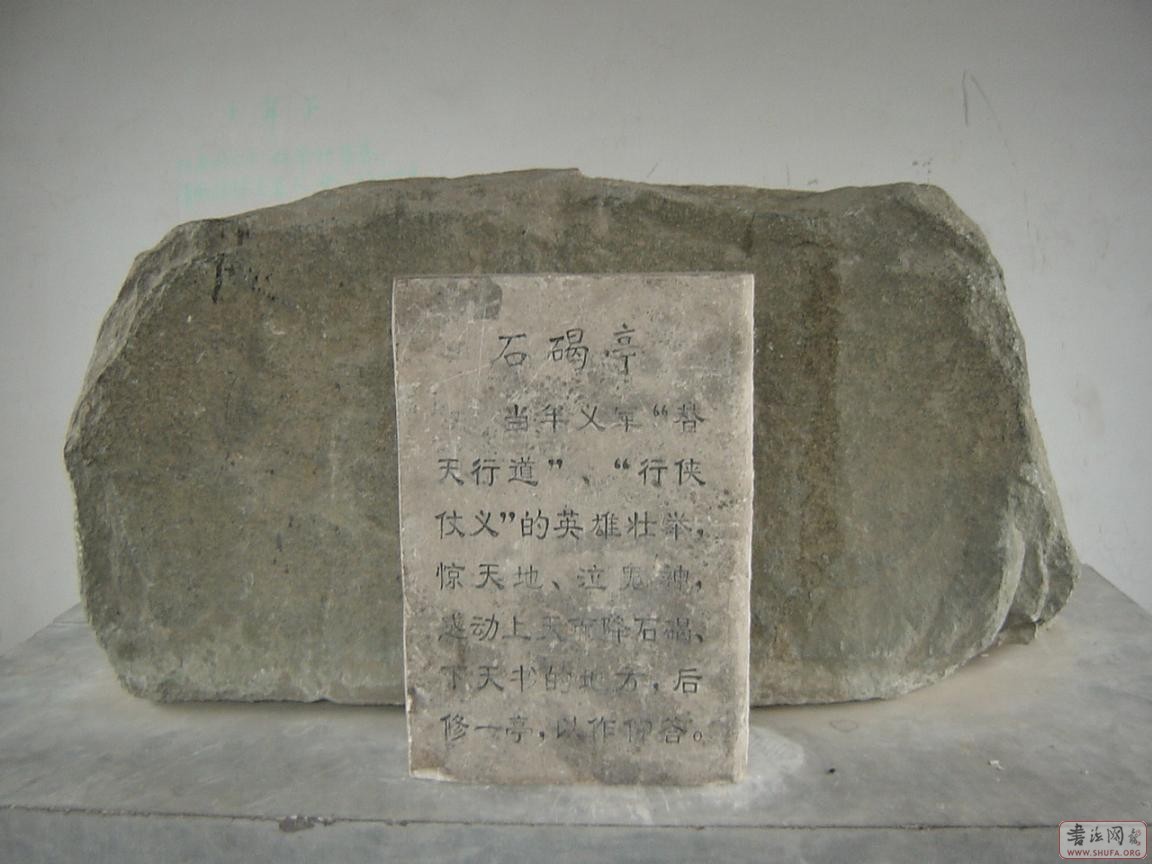 石碣亭
当年义军“替
天行道”、“行侠
仗义”的英雄壮举,
惊天地、泣鬼神,
感动上天而降石碣、
下天书的地方,后
修一亭,以作仰答。
书法网
WWW.SHUFA.ORG